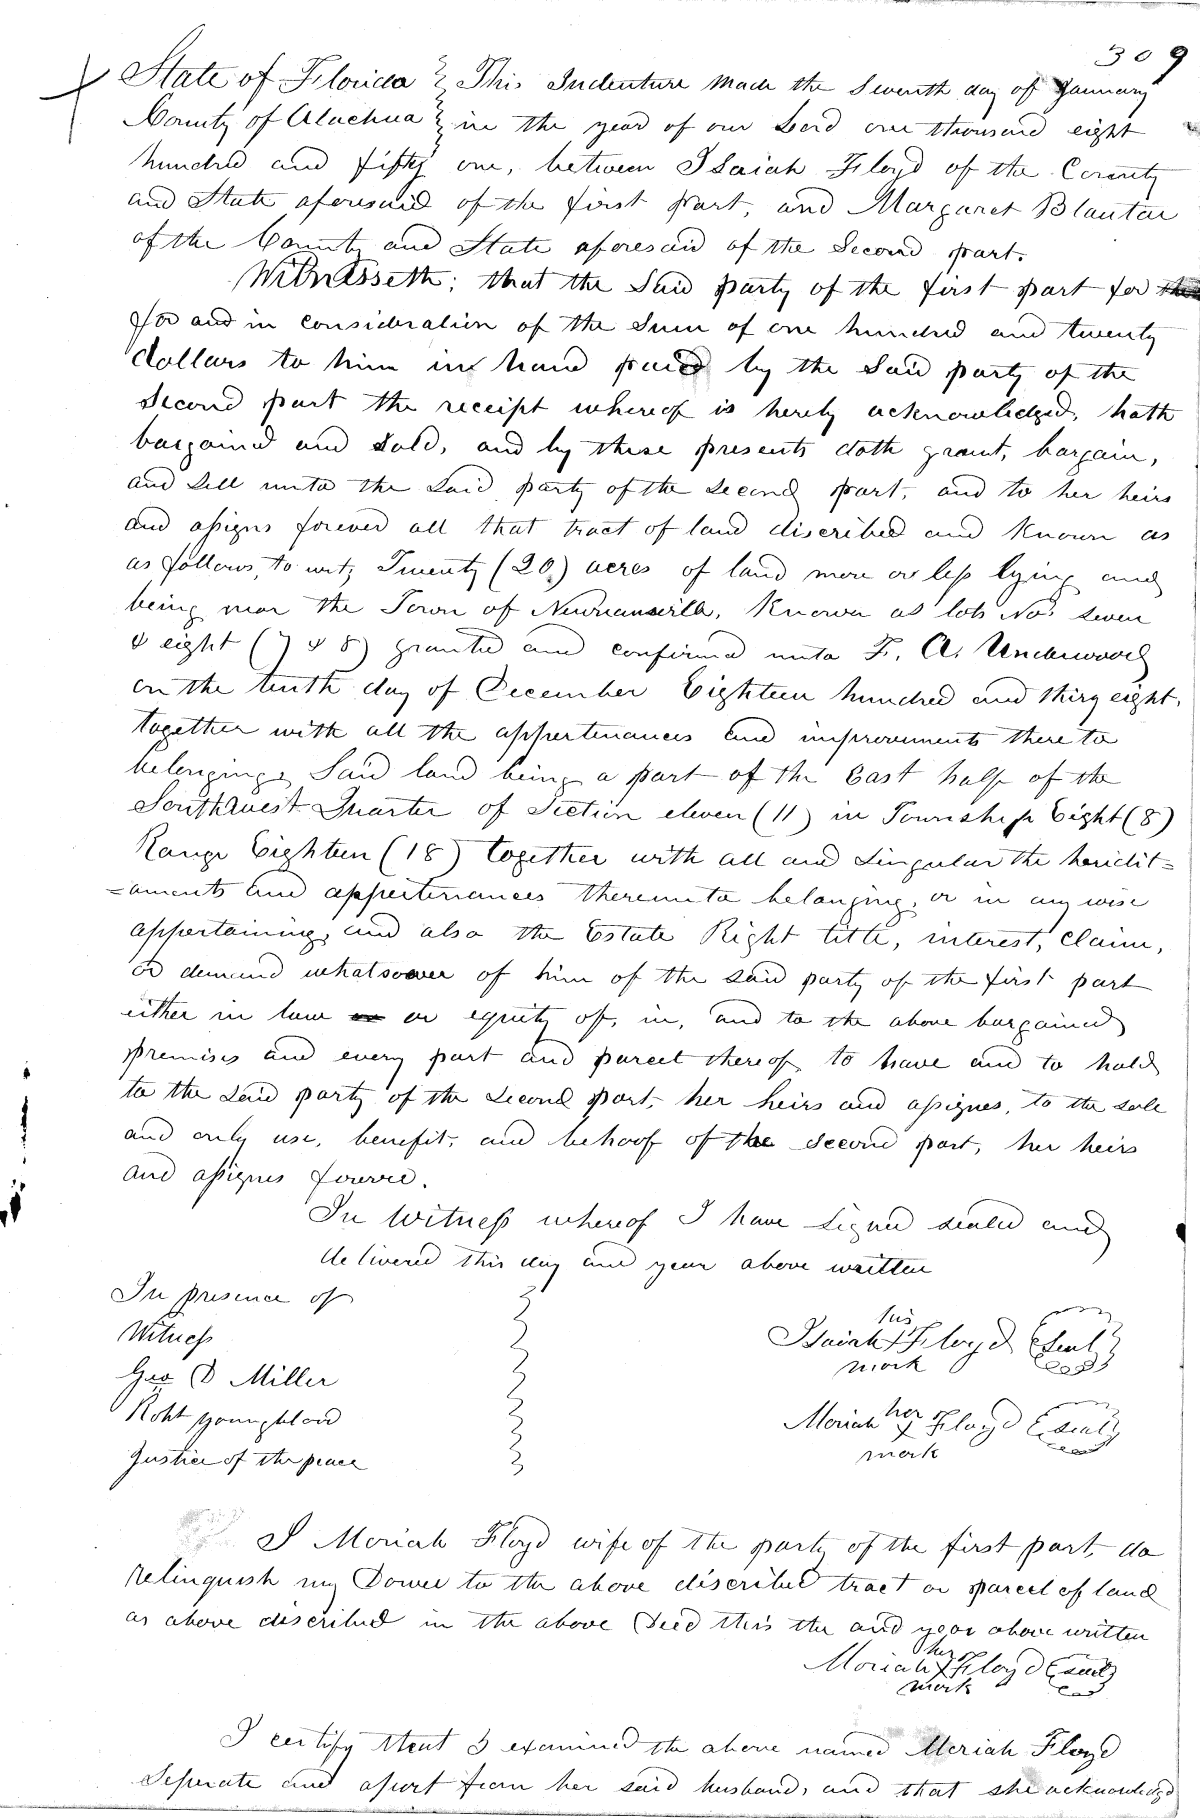 309
State of Florida } This Indenture made the Seventh day of January
County of Alachua } in the year of our Lord one thousand eight
hundred and fifty one, between Isaiah Floyd of the County
and State aforesaid of the first part, and Margaret Blanton
of the County and State aforesaid of the Second part.
Witnesseth; that the Said party of the first part for the
for and in consideration of the Sum of one hundred and twenty
dollars to him in hand paid by the Said party of the
Second part the receipt whereof is hereby acknowledged, hath
bargained and Sold, and by these presents doth grant, bargain,
and Sell unto the Said party of the Second part, and to her heirs
and assigns forever all that tract of land discribed and Known as
as follows, to wit; Twenty (20) acres of land more or less lying and
being near the Town of Newnansville, Known as lots Nos seven
& eight (7 & 8) granted and confirmed unto F. A. Underwood
on the tenth day of December Eighteen hundred and thiry eight,
together with all the appertinances and improvements there to
belonging, Said land being a part of the East half of the
SouthWest Quarter of Section eleven (11) in Township Eight (8)
Range Eighteen (18) together with all and Singular the heridit=
=aments and appertenances thereunto belonging, or in any wise
appertaining, and also the Estate Right title, interest, claim,
or demand whatsoever of him of the said party of the first part
either in law or or equity of, in, and to the above bargained
premises and every part and parcel thereof, to have and to hold
to the Said party of the Second part, her heirs and assignes, to the sole
and only use, benefit, and behoof of the Second part, her heirs
and assignes forever.
In Witness whereof I have Signed sealed and
delivered this day and year above written
In presence of
Witness
Geo D Miller
Robt Youngblood
Justice of the peace
his
Isaiah X Floyd (Seal)
mark
her
Moriah X Floyd (Seal)
mark
I Moriah Floyd wife of the party of the first part, do
relinquish my Dower to the above discribed tract or parcel of land
as above discribed in the above Deed this the and year above written
her
Moriah X Floyd (Seal)
mark
I certify that I examined the above named Moriah Floyd
Seperate and apart from her said husband, and that she acknowledgd